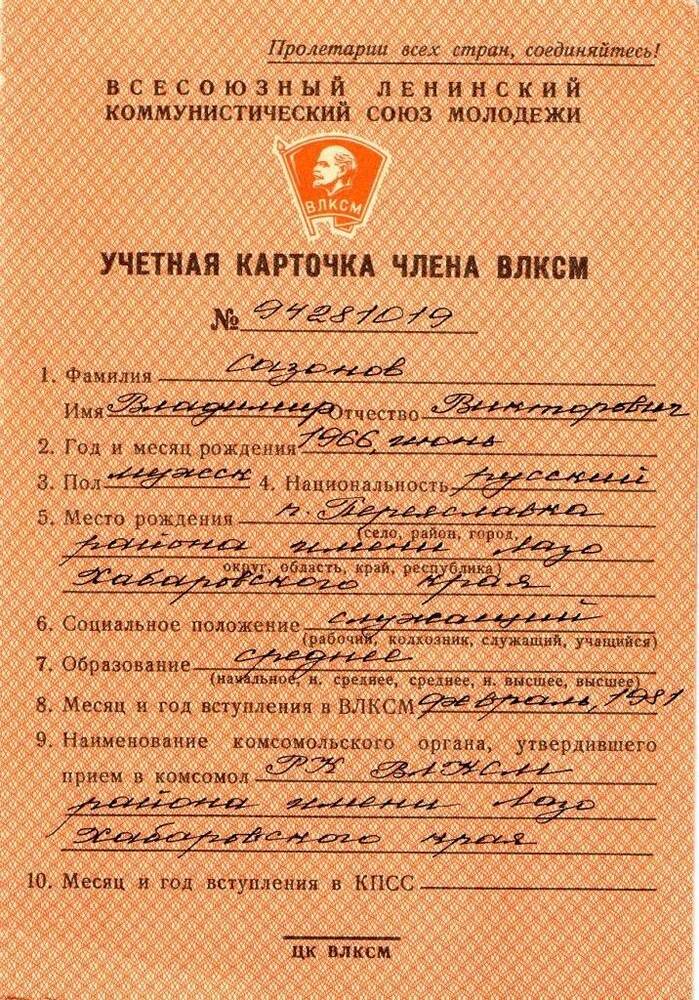 Пролетарии всех стран, соединяйтесь!
ВСЕСОЮЗНЫЙ ЛЕНИНСКИЙ
КОММУНИСТИЧЕСКИЙ СОЮЗ МОЛОДЕЖИ
ВЛКСМ
УЧЕТНАЯ КАРТОЧКА ЧЛЕНА ВЛКСМ
№ 94281019
1. Фамилия Сазонов
Имя Владимир Отчество Викторович
2. Год и месяц рождения 1966, июнь
3. Пол мужск 4. Национальность русский
5. Место рождения п. Переяславка
(село, район, город,
района имени Лазо
округ, область, край, республика)
Хабаровского края
6. Социальное положение служащий
(рабочий, колхозник, служащий, учащийся)
7. Образование среднее
(начальное, н. среднее, среднее, н. высшее, высшее)
8. Месяц и год вступления в ВЛКСМ февраль, 1981
9. Наименование комсомольского органа, утвердившего
прием в комсомол РК ВЛКСМ
района имени Лазо
Хабаровского края
10. Месяц и год вступления в КПСС
ЦК ВЛКСМ